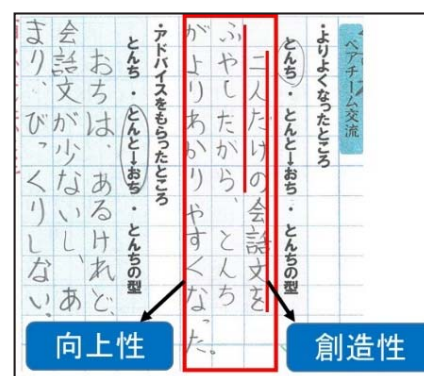 ペアチーム交流
・よりよくなったところ
とんち・とんと→おち・とんちの型
二人だけの会話文を
ふやしたがら、とんち
がよりわかりやすくなった。
・アドバイスをもらったところ
とんち・とんと→おち・とんちの型
おちは、あるけれど、
会話文が少ないし、あ
まり、びっくりしない。
向上性
創造性